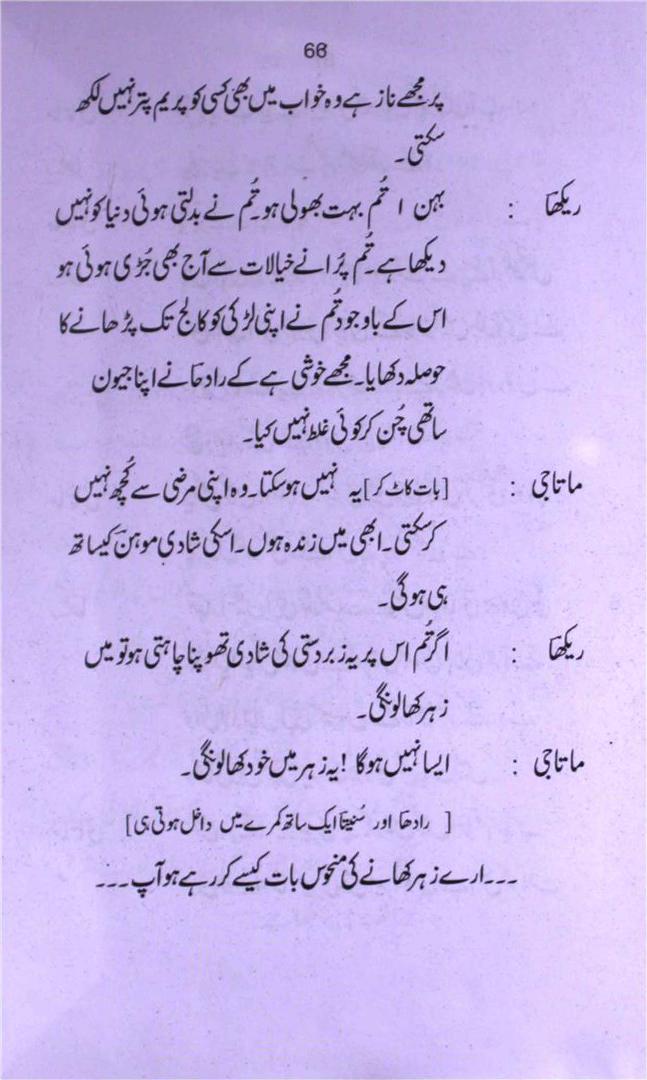 66
پر مجھے ناز ہے وہ خواب میں بھی کسی کو پریم پتر نہیں لکھ
سکتی۔
ریکھا : بہن ! تُم بہت بھولی ہو۔ تُم نے بدلتی ہوئی دنیا کو نہیں
دیکھا ہے۔ تُم پُرانے خیالات سے آج بھی جُڑی ہوئی ہو
اس کے باوجود تُم نے اپنی لڑکی کو کالج تک پڑھانے کا
حوصلہ دکھایا۔ مجھے خوشی ہے کے رادھا نے اپنا جیون
ساتھی چُن کر کوئی غلط نہیں کیا۔
ماتاجی : [بات کاٹ کر] یہ نہیں ہو سکتا۔ وہ اپنی مرضی سے کُچھ نہیں
کر سکتی۔ ابھی میں زندہ ہوں۔ اسکی شادی موہن کیساتھ
ہی ہوگی۔
ریکھا : اگر تُم اس پر یہ زبردستی کی شادی تھوپنا چاہتی ہو تو میں
زہر کھالونگی۔
ماتاجی : ایسا نہیں ہوگا ! یہ زہر میں خود کھالونگی۔
[ رادھا اور سُنیتا ایک ساتھ کمرے میں داخل ہوتی ہی]
۔۔۔ ارے زہر کھانے کی منحوس بات کیسے کر رہے ہو آپ ۔۔۔